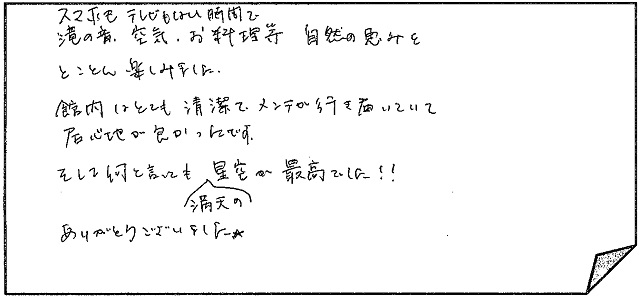 スマホも テレビもない 時間で
滝の音、空気、お料理等 自然の恵みを
とことん 楽しみました。
館内はとても 清潔で、メンテが行き届いていて
居心地が良かったです。
そして何と言っても 満天の 星空が 最高でした!!
ありがとうございました★